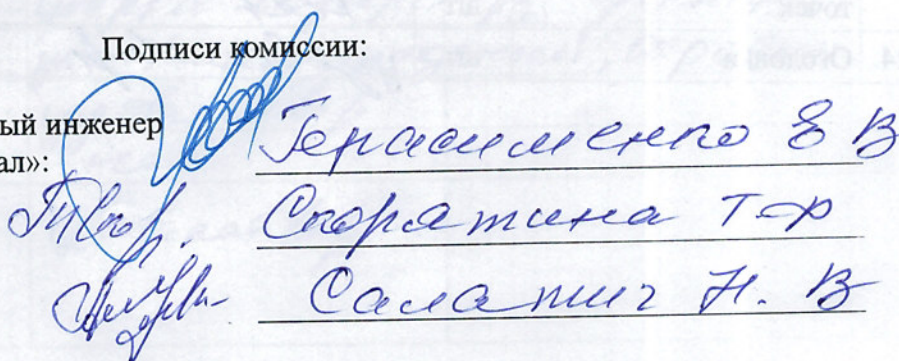 Подписи комиссии:
ый инженер
ал»: Герасименко Е В
Скорятина Т Ф
Саланич Н. В